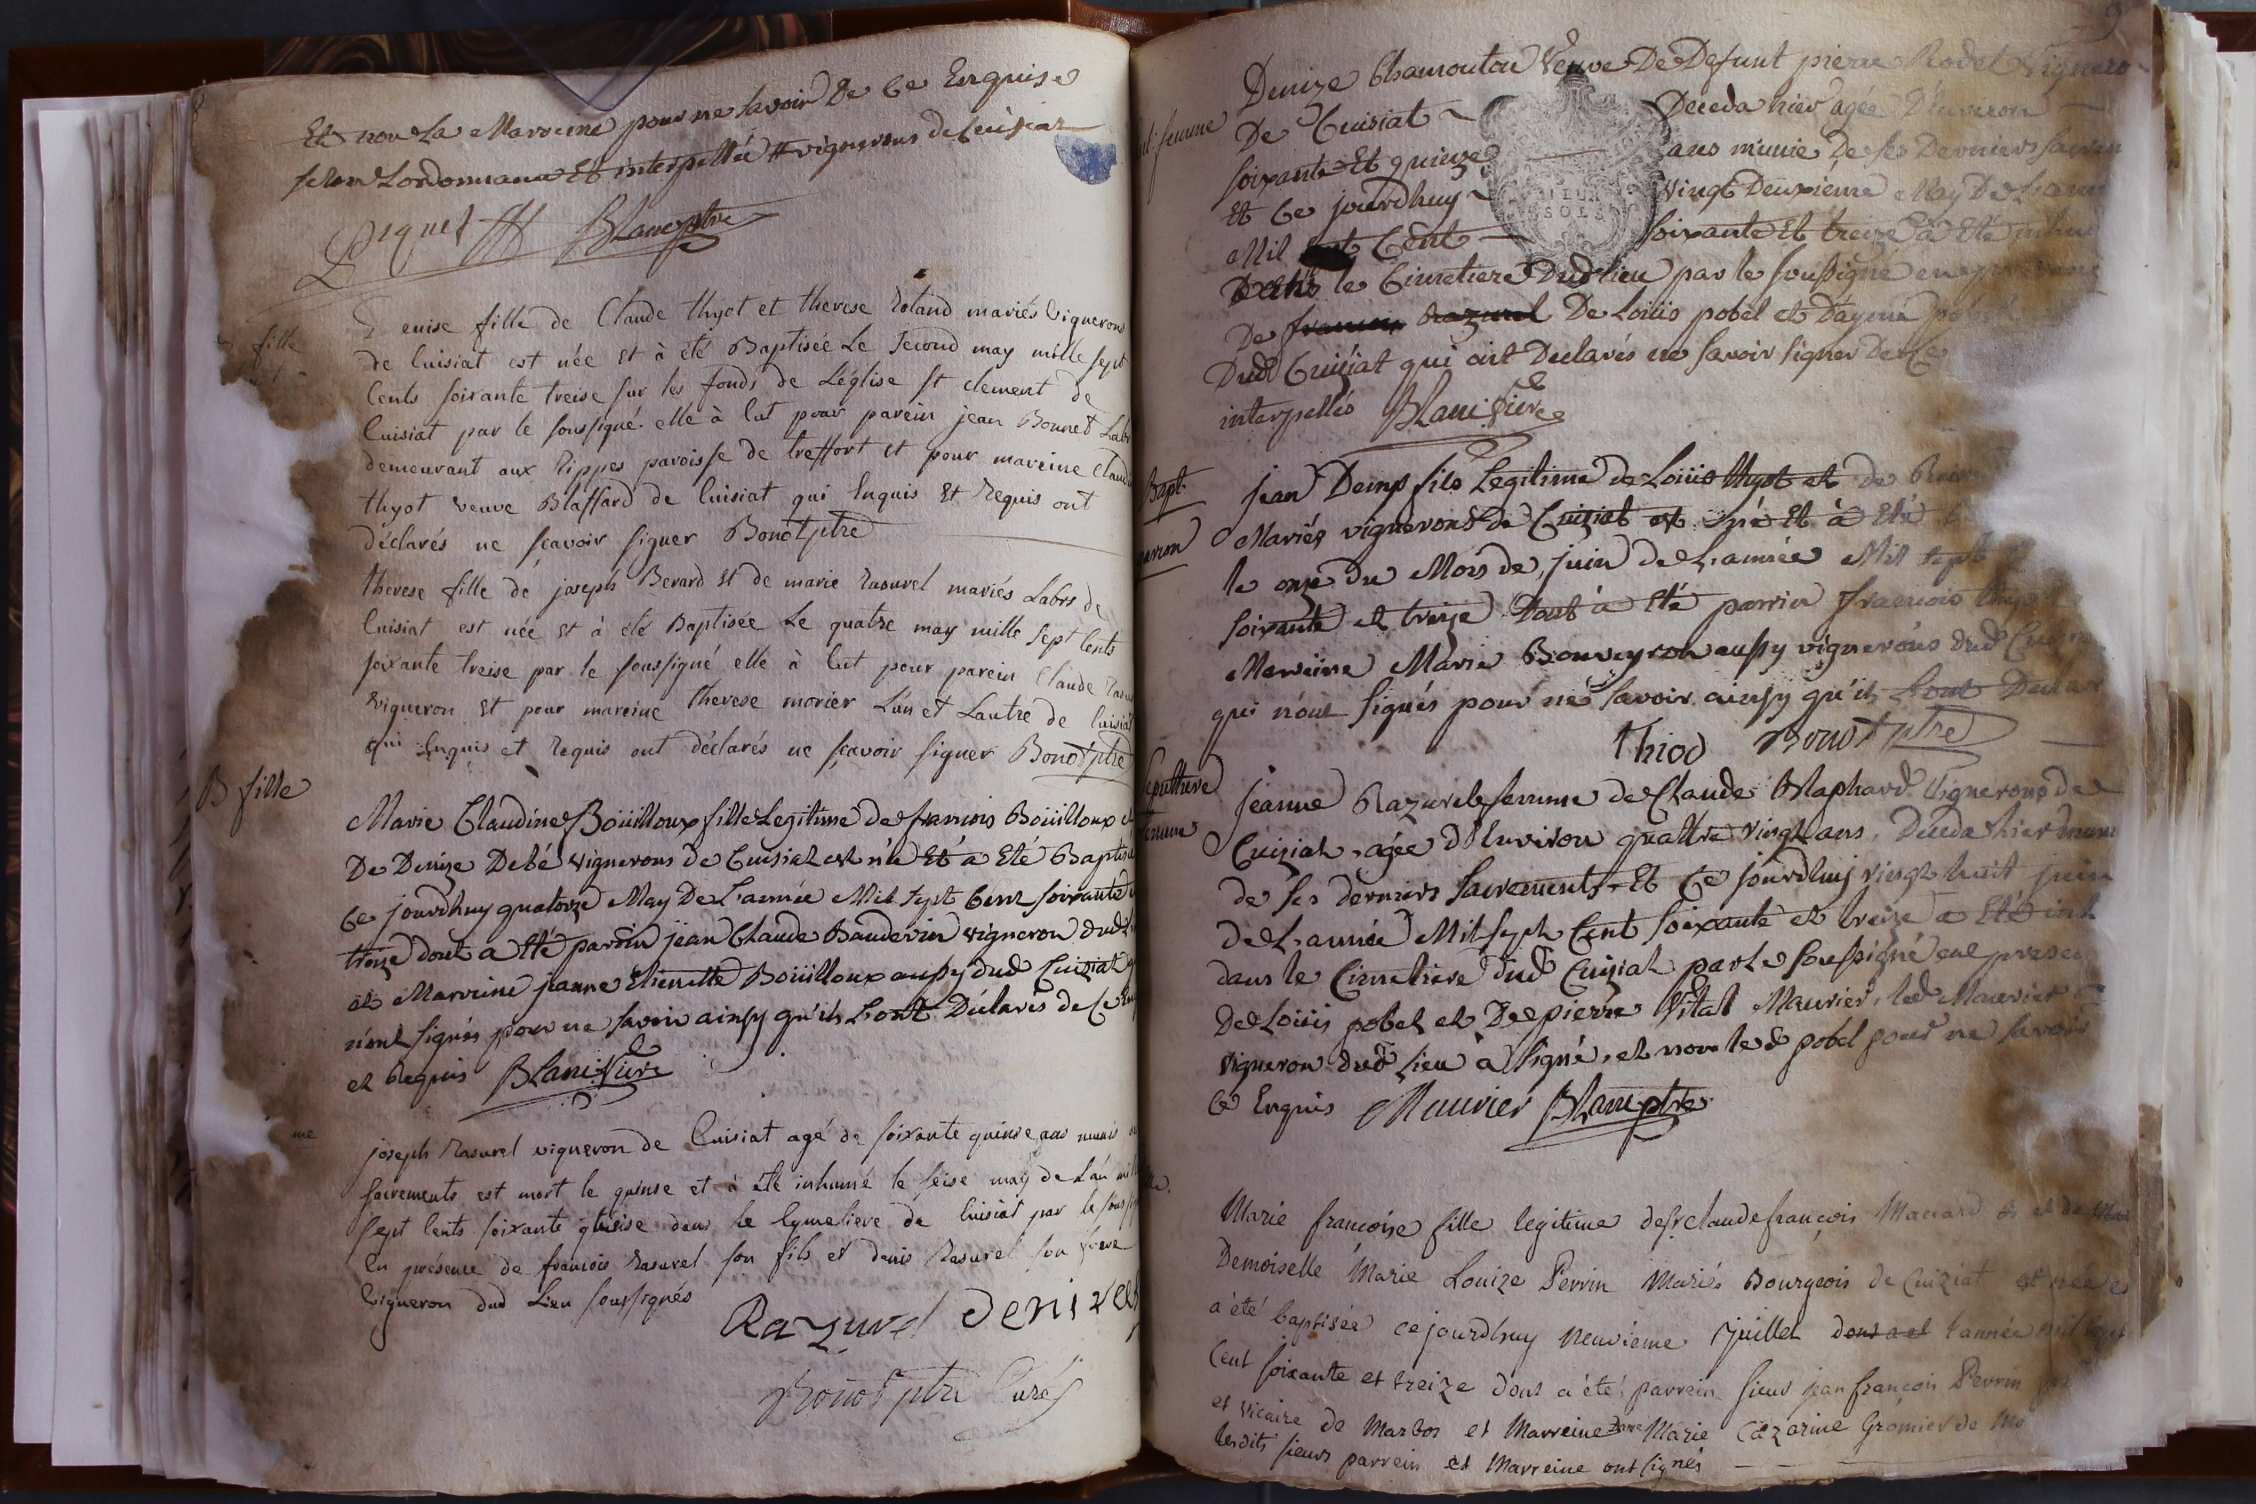 Et non La Marreine pour ne savoir De Ce Enquise
selon Lordonnance Et interpellée # vignerons de Cuisiat
Piquet Blanc ptre
fille
Denise fille de Claude thyot et therese Roland mariés Vignerons
de Cuisiat est née et à été Baptisée Le Second may mille sept
Cents soixante treise sur les fonds de L'église st clement de
Cuisiat par le soussigné elle à Eut pour parein jean Bonnet Lab
demeurant aux Rippes paroisse de treffort et pour mareine Claud
thyot veuve Blaffard de Cuisiat qui Enquis Et Requis ont
déclarés ne sçavoir signer Bonot ptre
therese fille de joseph Berard et de marie Rasurel mariés Labrs de
Cuisiat est née et à été Baptisée Le quatre may mille sept Cents
soixante treise par le soussigné elle à Eut pour parein Claude
vigneron et pour mareine therese morier L'un et Lautre de Cuisiat
qui Enquis et Requis ont déclarés ne sçavoir signer Bonot ptre
B fille
Marie Claudine Boüilloux fille Legitime de francois Boüilloux
De Denize Debé vignerons de Cuisiat est née Et a Eté Baptisé
Ce jourdhuy quatorze May De L'année Mil sept Cent soixante
treize dont a Eté parrin jean Claude Baudevin vigneron dud
et Marreine jeanne Etienette Boüilloux aussy dud Cuiziat
n'ont signés pour ne savoir ainsy qu'ils L'ont Déclarés de Ce
et Requis Blanc Vicre
me
joseph Rasurel vigneron de Cuisiat agé de soixante quinse ans munis
sacrements est mort le quinse et à été inhumé le seise may de L'an
sept Cents soixante treise dans le Cymetiere de Cuisiat par le
En présence de francois Rasurel son fils et denis Rasurel son frere
Vigneron dud Lieu soussignés
Razurel Denis
Bonot ptre Curé
9
femme
Denize Chamouton Veuve De Defunt pierre Rodet Vignero
De Cuisiat Deceda hier agée D'environ
soixante Et quinze ans munie De ses Derniers
Et Ce jourdhuy vingt Deuxiéme May De
Mil Cent soixante Et treize a Eté
Dans le Cimetiere Dud lieu par le soussigné en
De Loüis pobel et
Dud Cuiziat qui ont Declarés ne savoir signer De Ce
interpellés Blanc Vicre
Bapt.
jean Denis fils Legitime de Loüis thyot et de
Mariés vignerons de Cuiziat est né Et à Eté
le onze du Mois de juin de L'année Mil sept
soixante et treize Dont a Eté parrin francois
Marreine Marie Bouveyron aussy vignerons dud
qui n'ont signés pour ne savoir ainsy qu'ils L'ont
thiod Bonot ptre
Sepulture
femme
jeanne Razurel femme de Claude Blaphard Vignerons de
Cuiziat, agée d'Environ quattre vingt ans, Deceda hier
de ses derniers sacrements, Et Ce jourdhuy vingt huit juin
de L'année Mil sept Cent soixante et treize a Eté
dans le Cimetiere dud Cuiziat par Le soussigné en
De Loüis pobel et De pierre Vital Maurier, led Maurier
vigneron dud lieu a signé, et non led pobel pour ne savoir
Ce Enquis Maurier Blanc ptre
Marie françoise fille legitime de sr claude françois
Demoiselle Marie Louize Perrin Mariés Bourgeois de Cuiziat est née
a été baptisée cejourdhuy neuvieme juillet l'année
Cent soixante et treize dont a été parrein sieur jean françois Perrin
et vicaire de Marbos et Marreine Marie Grômier de
lesdits sieurs parrein et Marreine ont signés